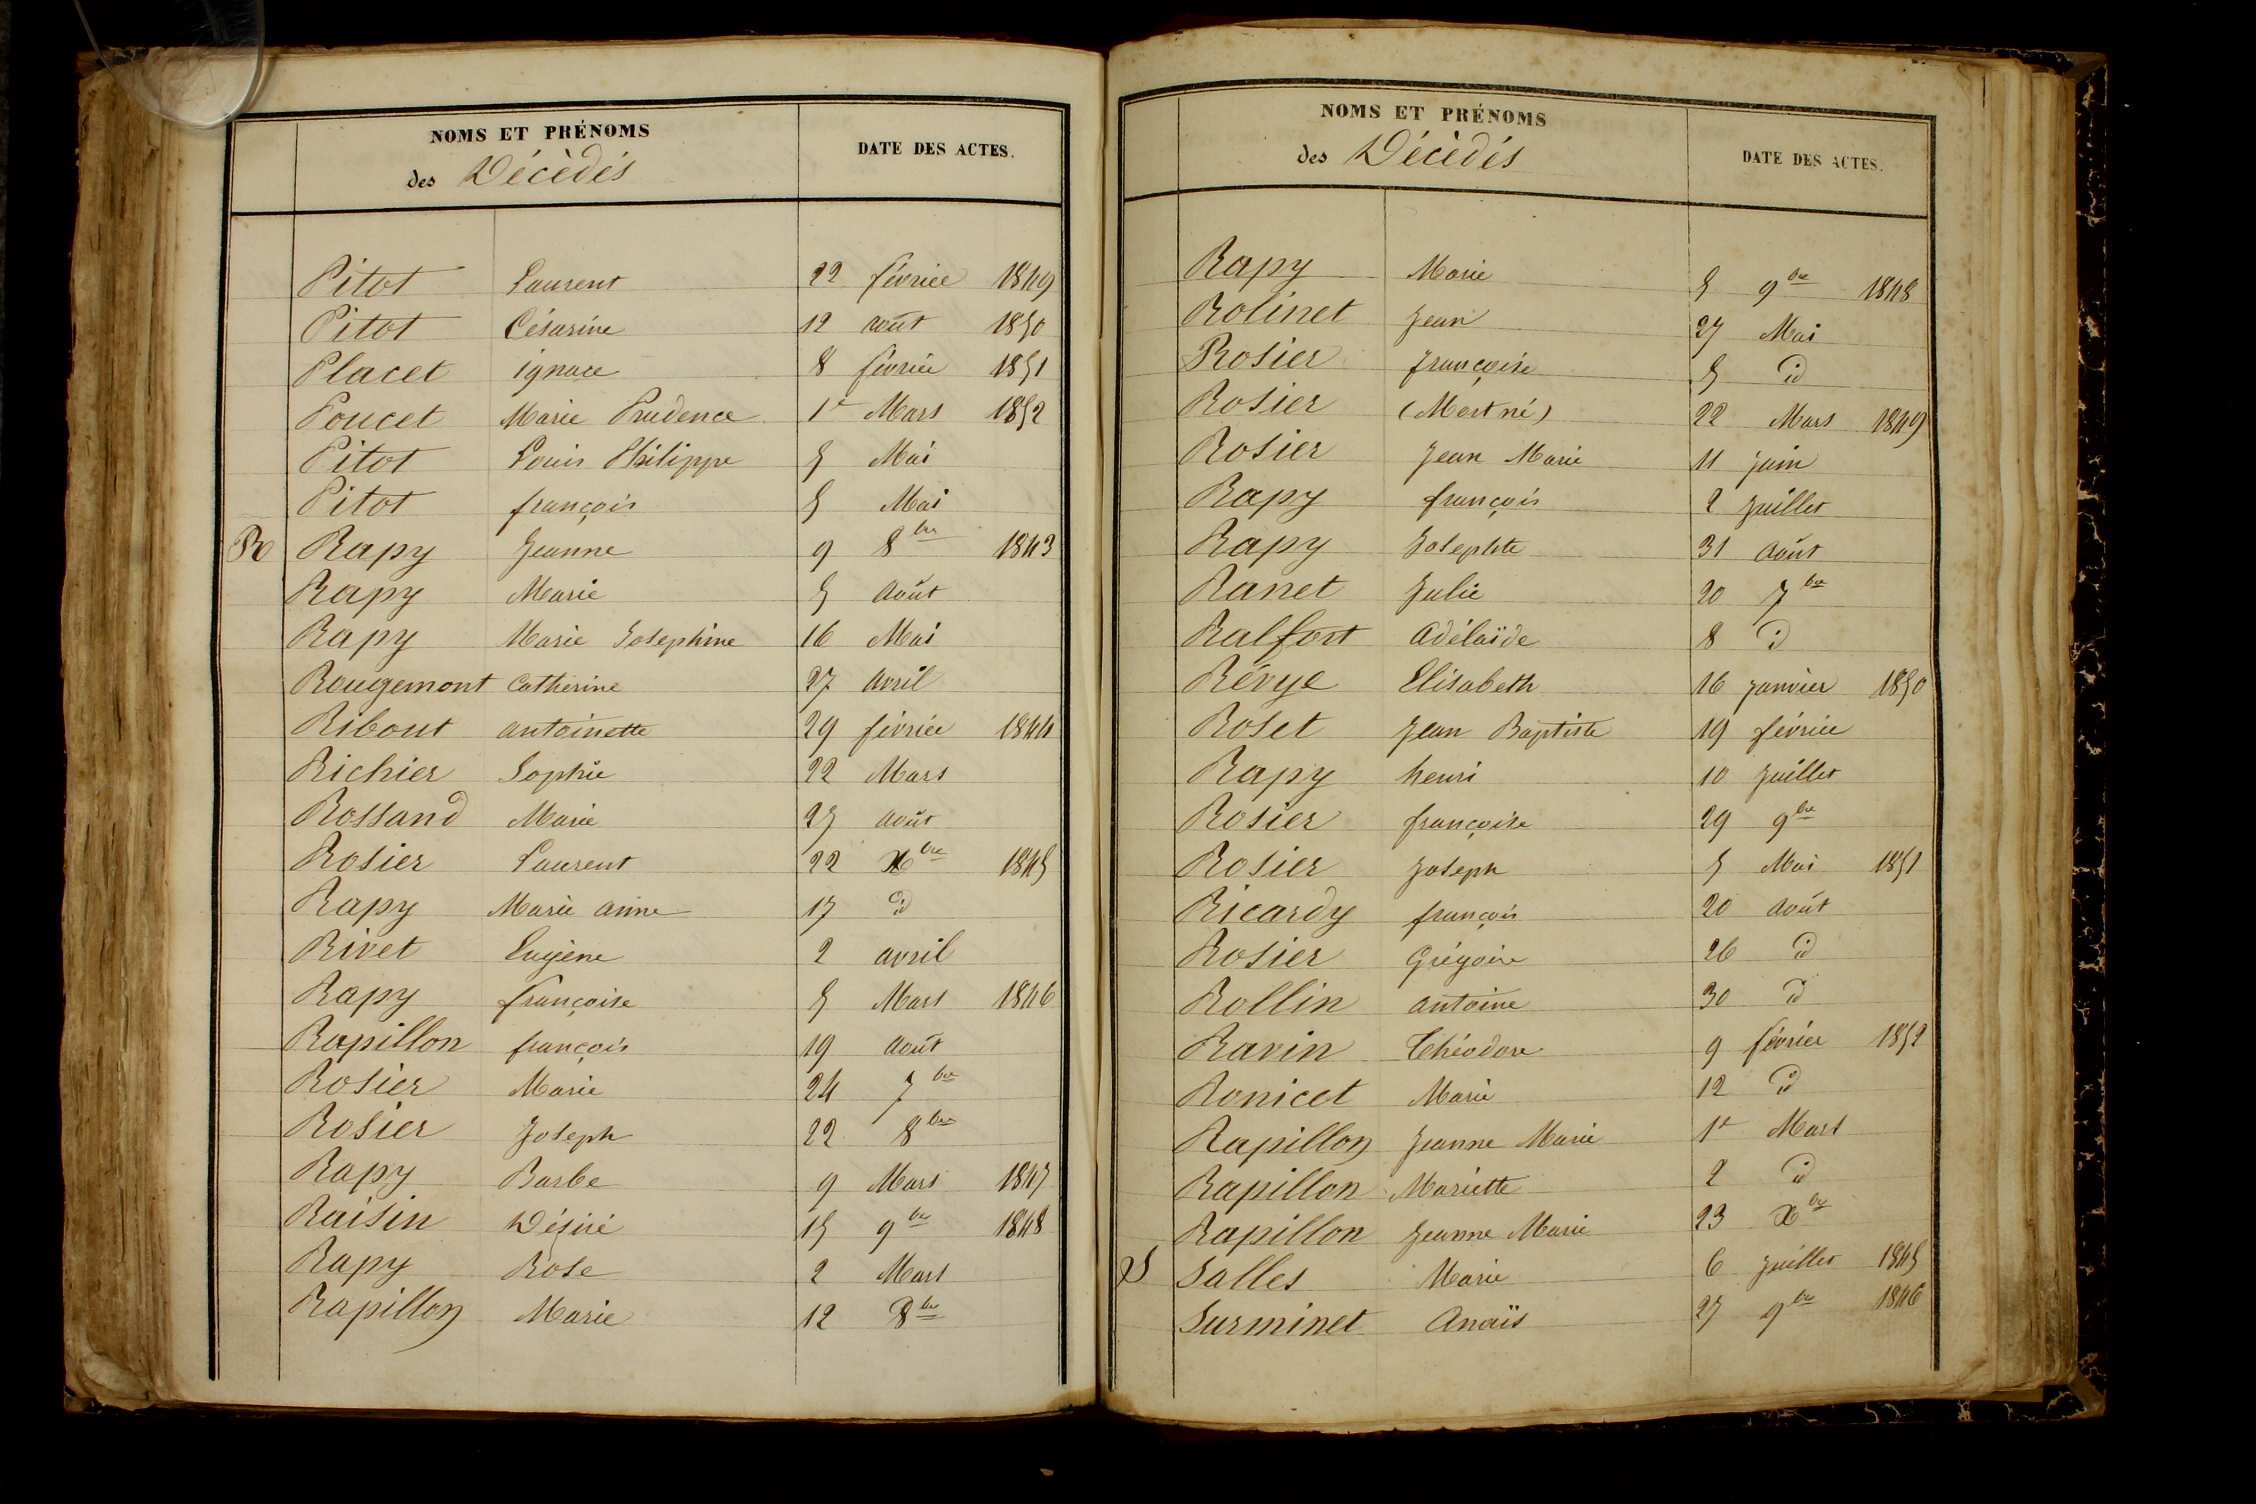 NOMS ET PRÉNOMS
des Décèdés
DATE DES ACTES.
Pitot Laurent 22 février 1849
Pitot Césarine 12 août 1850
Placet ignace 8 février 1851
Poucet Marie Prudence 1er Mars 1852
Pitot Louis Philippe 5 Mai
Pitot françois 5 Mai
R Rapy Jeanne 9 8bre 1843
Rapy Marie 5 Août
Rapy Marie Josephine 16 Mai
Rougemont Catherine 27 Avril
Ribout antoinette 29 février 1844
Richier Sophie 22 Mars
Rossand Marie 25 août
Rosier Laurent 22 Xbre 1845
Rapy Marie anne 17 id
Rivet Eugène 2 avril
Rapy françoise 5 Mars 1846
Rapillon françois 19 Août
Rosier Marie 24 7bre
Rosier Joseph 22 8bre
Rapy Barbe 9 Mars 1847
Raisin Désiré 15 9bre 1848
Rapy Rose 2 Mars
Rapillon Marie 12 8bre
NOMS ET PRÉNOMS
des Décèdés
DATE DES ACTES.
Rapy Marie 5 9bre 1848
Rolinet Jean 27 Mai
Rosier françoise 5 id
Rosier (Mort né) 22 Mars 1849
Rosier Jean Marie 11 juin
Rapy françois 2 Juillet
Rapy Josephte 31 Août
Ranet Julie 20 7bre
Ralfort Adélaïde 8 id
Révye Elisabeth 16 Janvier 1850
Roset Jean Baptiste 19 février
Rapy henri 10 Juillet
Rosier françoise 29 9bre
Rosier Joseph 5 Mai 1851
Ricardy françois 20 Août
Rosier Grégoire 26 id
Rollin antoine 30 id
Ravin Théodore 9 février 1852
Ronicet Marie 12 id
Rapillon Jeanne Marie 1er Mars
Rapillon Mariette 2 id
Rapillon Jeanne Marie 23 Xbre
S Salles Marie 6 Juillet 1845
Surminet Anaïs 27 9bre 1846